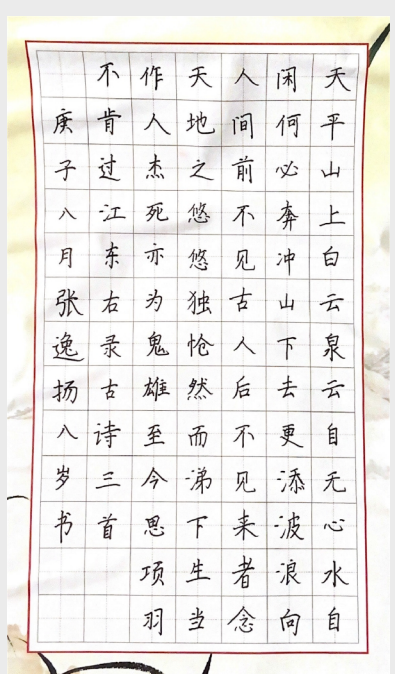 天平山上白云泉云自无心水自
闲何必奔冲山下去更添波浪向
人间前不见古人后不见来者念
天地之悠悠独怆然而涕下生当
作人杰死亦为鬼雄至今思项羽
不肯过江东右录古诗三首
庚子八月张逸扬八岁书